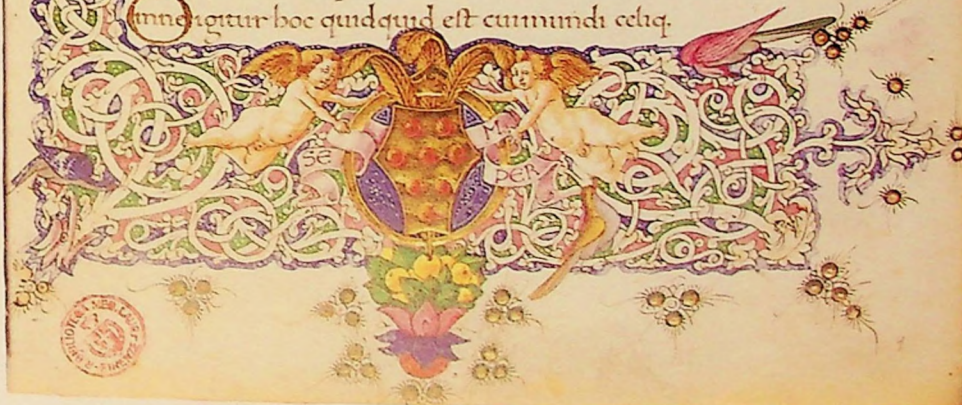 Omne igitur hoc quidquid est cuimundi celiq.
SE M
PER